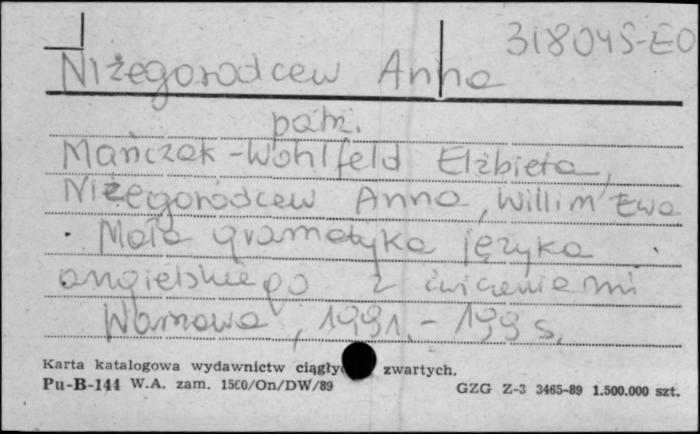 318045-EO
Niżegorodcew Anna
patrz.
Mańczak-Wohlfeld Elżbieta,
Niżegorodcew Anna, Willim Ewa
Mała gramatyka języka
angielskiego z ćwiczeniami
Warszawa, 1991. - 199 s.
Karta katalogowa wydawnictw ciągły zwartych.
Pu-B-144 W.A. zam. 1560/On/DW/89 GZG Z-3 3465-89 1.500.000 szt.